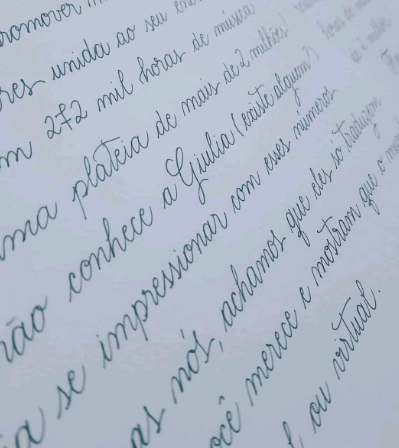 promover
res unida ao seu
m 272 mil horas de música
ma plateia de mais de 2 milhões!
não conhece a Giulia (existe alguém?)
ia se impressionar com esses números
as nós, achamos que eles só traduzem
ocê merece e mostram que o
l ou virtual.